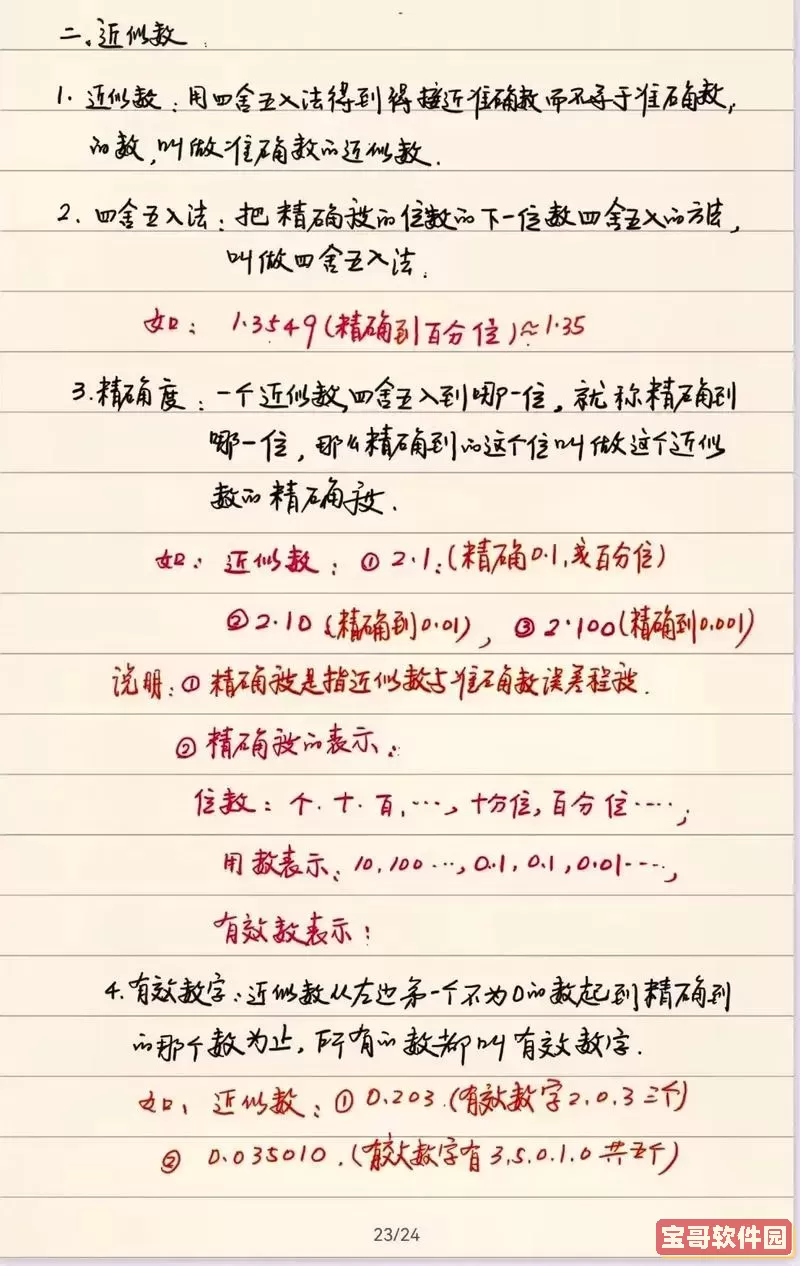 二、近似数.
1. 近似数：用四舍五入法得到得接近准确数而不等于准确数,
的数,叫做准确数的近似数.
2. 四舍五入法：把精确度的位数的下一位数四舍五入的方法,
叫做四舍五入法.
如： 1.3549(精确到百分位)≈1.35
3.精确度：一个近似数,四舍五入到哪一位,就称精确到
哪一位,那么精确到的这个位叫做这个近似
数的精确度.
如：近似数：①2.1:(精确0.1,或百分位)
②2.10 (精确到0.01), ③2.100(精确到0.001)
说明:①精确度是指近似数与准确数误差程度.
②精确度的表示：
位数：个.十.百,…,十分位,百分位……;
用数表示:10,100…,0.1,0.1,0.01……,
有效数表示:
4.有效数字:近似数从左边第一个不为0的数起到精确到
的那个数为止,所有的数都叫有效数字.
如、近似数：①0.203.(有效数字2.0.3三个)
②0.035010.(有效数字有3,5.0.1.0共五个)
23/24
宝哥软件园